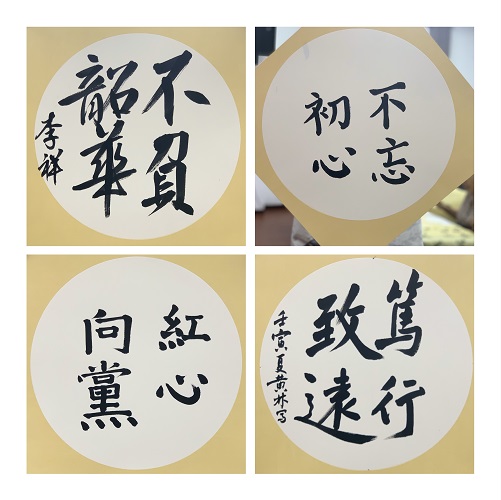 不負
韶華
李祥
不忘
初心
紅心
向黨
篤行
致遠
壬寅夏黄林写